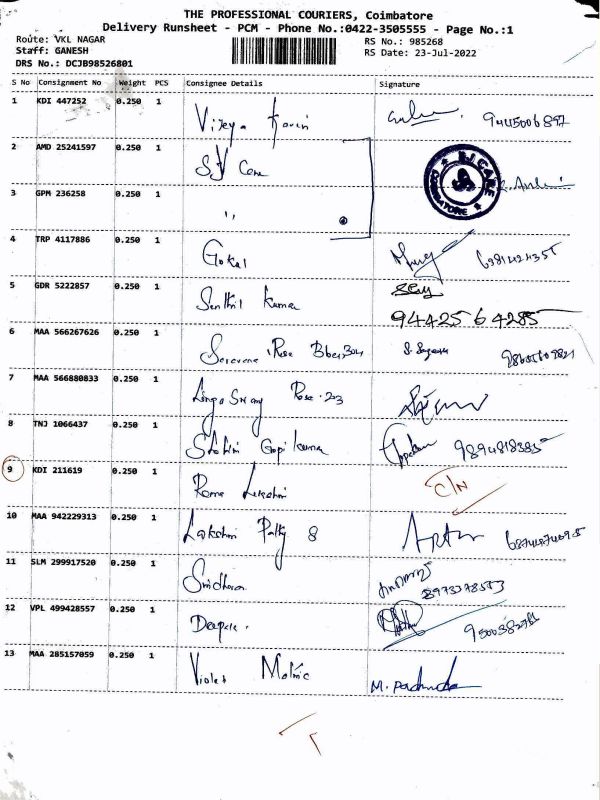 THE PROFESSIONAL COURIERS, Coimbatore
Delivery Runsheet - PCM - Phone No.:0422-3505555 - Page No.:1
Route: VKL NAGAR RS No.: 985268
Staff: GANESH RS Date: 23-Jul-2022
DRS No.: DCJB98526801
S No Consignment No Weight PCS Consignee Details Signature
1 KDI 447252 0.250 1 Vijeya 9445006897
2 AMD 25241597 0.250 1 SJ Care
3 GPM 236258 0.250 1 "
S.J. CARE
COIMBATORE
4 TRP 4117886 0.250 1 Gokul
5 GDR 5222857 0.250 1 Senthil Kumar
9442564285
6 MAA 566267626 0.250 1 Saravana Rose
7 MAA 566880833 0.250 1 Rose 203
8 TNJ 1066437 0.250 1 Gopi Kumar 9894818385
9 KDI 211619 0.250 1 Rama Lakshmi C/N
10 MAA 942229313 0.250 1 Lakshmi 8
11 SLM 299917520 0.250 1 Sridharan
8973078553
12 VPL 499428557 0.250 1 Deepak.
13 MAA 285157059 0.250 1 Violet M.
T